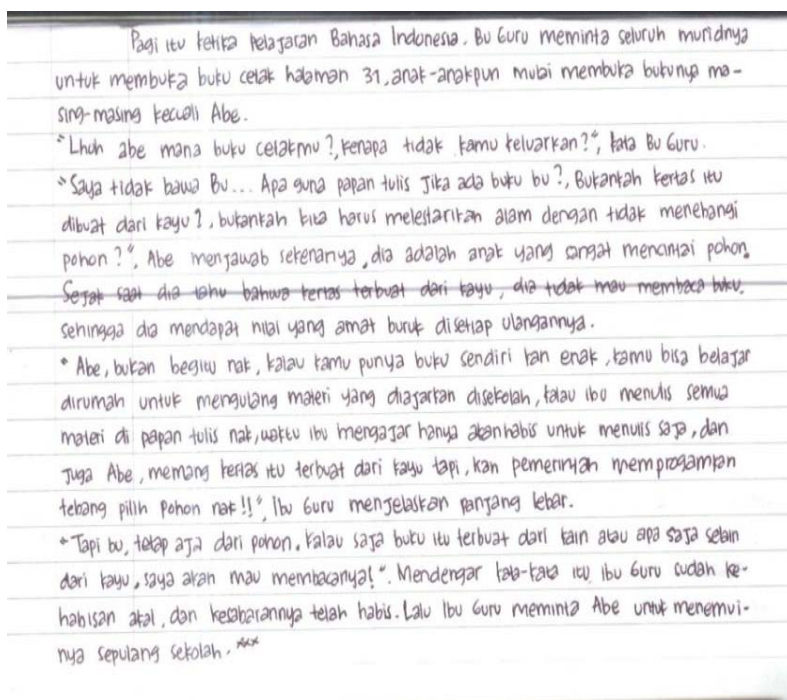 Pagi itu ketika pelajaran Bahasa Indonesia. Bu Guru meminta seluruh muridnya
untuk membuka buku cetak halaman 31, anak-anakpun mulai membuka bukunya ma-
sing-masing kecuali Abe.
"Lhoh abe mana buku cetakmu?, kenapa tidak kamu keluarkan?", kata Bu Guru.
"Saya tidak bawa Bu... Apa guna papan tulis Jika ada buku bu?, Bukankah kertas itu
dibuat dari kayu?, bukankah kita harus melestarikan alam dengan tidak menebangi
pohon?". Abe menjawab sekenanya, dia adalah anak yang sangat mencintai pohon.
Sejak saat dia tahu bahwa kertas terbuat dari kayu, dia tidak mau membaca buku.
sehingga dia mendapat nilai yang amat buruk disetiap ulangannya.
"Abe, bukan begitu nak, kalau kamu punya buku sendiri kan enak, kamu bisa belajar
dirumah untuk mengulang materi yang diajarkan disekolah, kalau ibu menulis semua
materi di papan tulis nak, waktu ibu mengajar hanya akan habis untuk menulis saja, dan
Juga Abe, memang kertas itu terbuat dari kayu tapi, kan pemerintah memprogamkan
tebang pilih pohon nak!!", Ibu Guru menjelaskan panjang lebar.
"Tapi bu, tetap aja dari pohon. Kalau saja buku itu terbuat dari kain atau apa saja selain
dari kayu, saya akan mau membacanya!". Mendengar kata-kata itu Ibu Guru sudah ke-
habisan akal, dan kesabarannya telah habis. Lalu Ibu Guru meminta Abe untuk menemui-
nya sepulang sekolah. ***